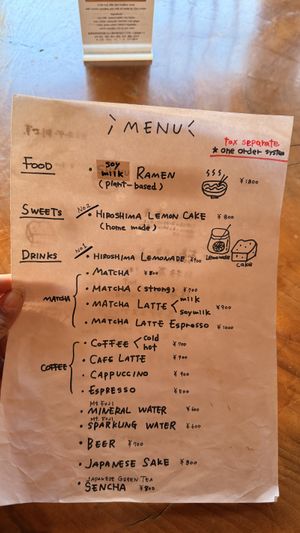 MENU
tax separate
* one order system
FOOD
• soy milk RAMEN ¥1800
(plant-based)
SWEETS
No2 • HIROSHIMA LEMON CAKE ¥800
(home made)
Lemonade
CAKE
DRINKS
No1 • HIROSHIMA LEMONADE
MATCHA
• MATCHA
• MATCHA (strong) ¥700
• MATCHA LATTE < milk soymilk ¥900
• MATCHA LATTE ESPRESSO ¥1000
COFFEE
• COFFEE < cold hot ¥700
• CAFE LATTE ¥700
• CAPPUCCINO ¥700
• ESPRESSO ¥500
Mt. FUJI
• MINERAL WATER ¥600
Mt. FUJI
• SPARKLING WATER ¥600
• BEER ¥700
• JAPANESE SAKE ¥800
JAPANESE GREEN TEA
• SENCHA ¥800